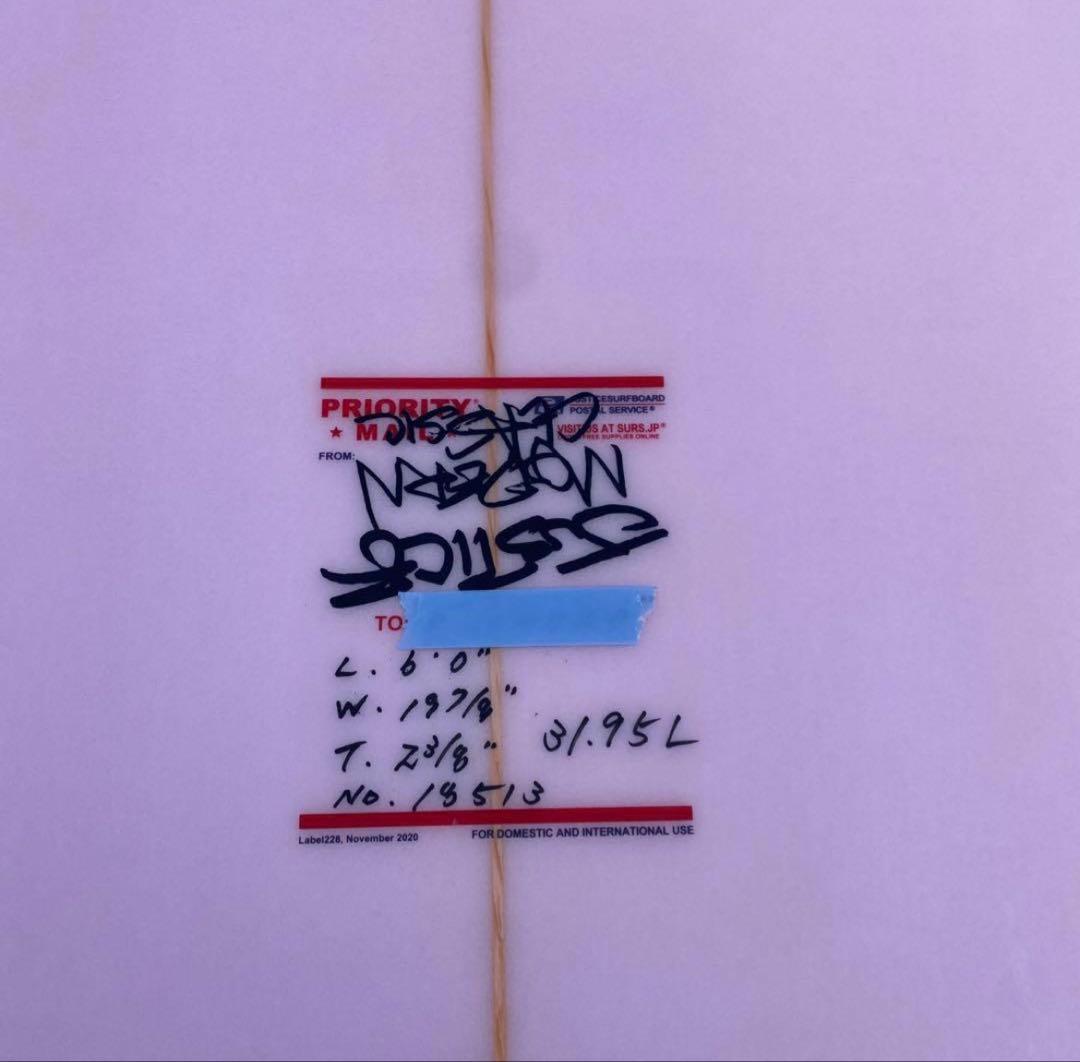 PRIORITY
★ MAIL ★
JUSTICESURFBOARD
POSTAL SERVICE®
VISIT US AT SURS.JP®
FREE SUPPLIES ONLINE
FROM:
JUSTICE
MODERN
CLASSIC
TO:
L. 6'0"
W. 19 7/8"
T. 2 3/8"
31.95 L
No. 18513
Label228, November 2020
FOR DOMESTIC AND INTERNATIONAL USE